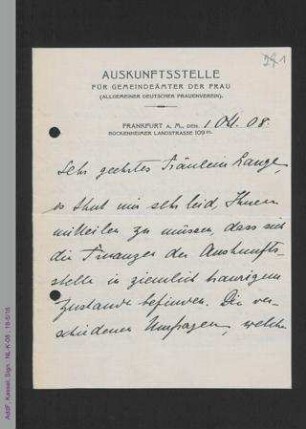 291
AUSKUNFTSSTELLE
FÜR GEMEINDEÄMTER DER FRAU
(ALLGEMEINER DEUTSCHER FRAUENVEREIN).
FRANKFURT A. M., DEN 1. Okt. 08.
ROCKENHEIMER LANDSTRASSE 109 III.
Sehr geehrtes Fräulein Lange,
es thut mir sehr leid, Ihnen
mitteilen zu müssen, dass sich
die Finanzen der Auskunfts-
stelle in ziemlich traurigem
Zustande befinden. Die ver-
schiedenen Umfragen, welche
AddF, Kassel, Sign.: NL-K-08 ; 18-5/16